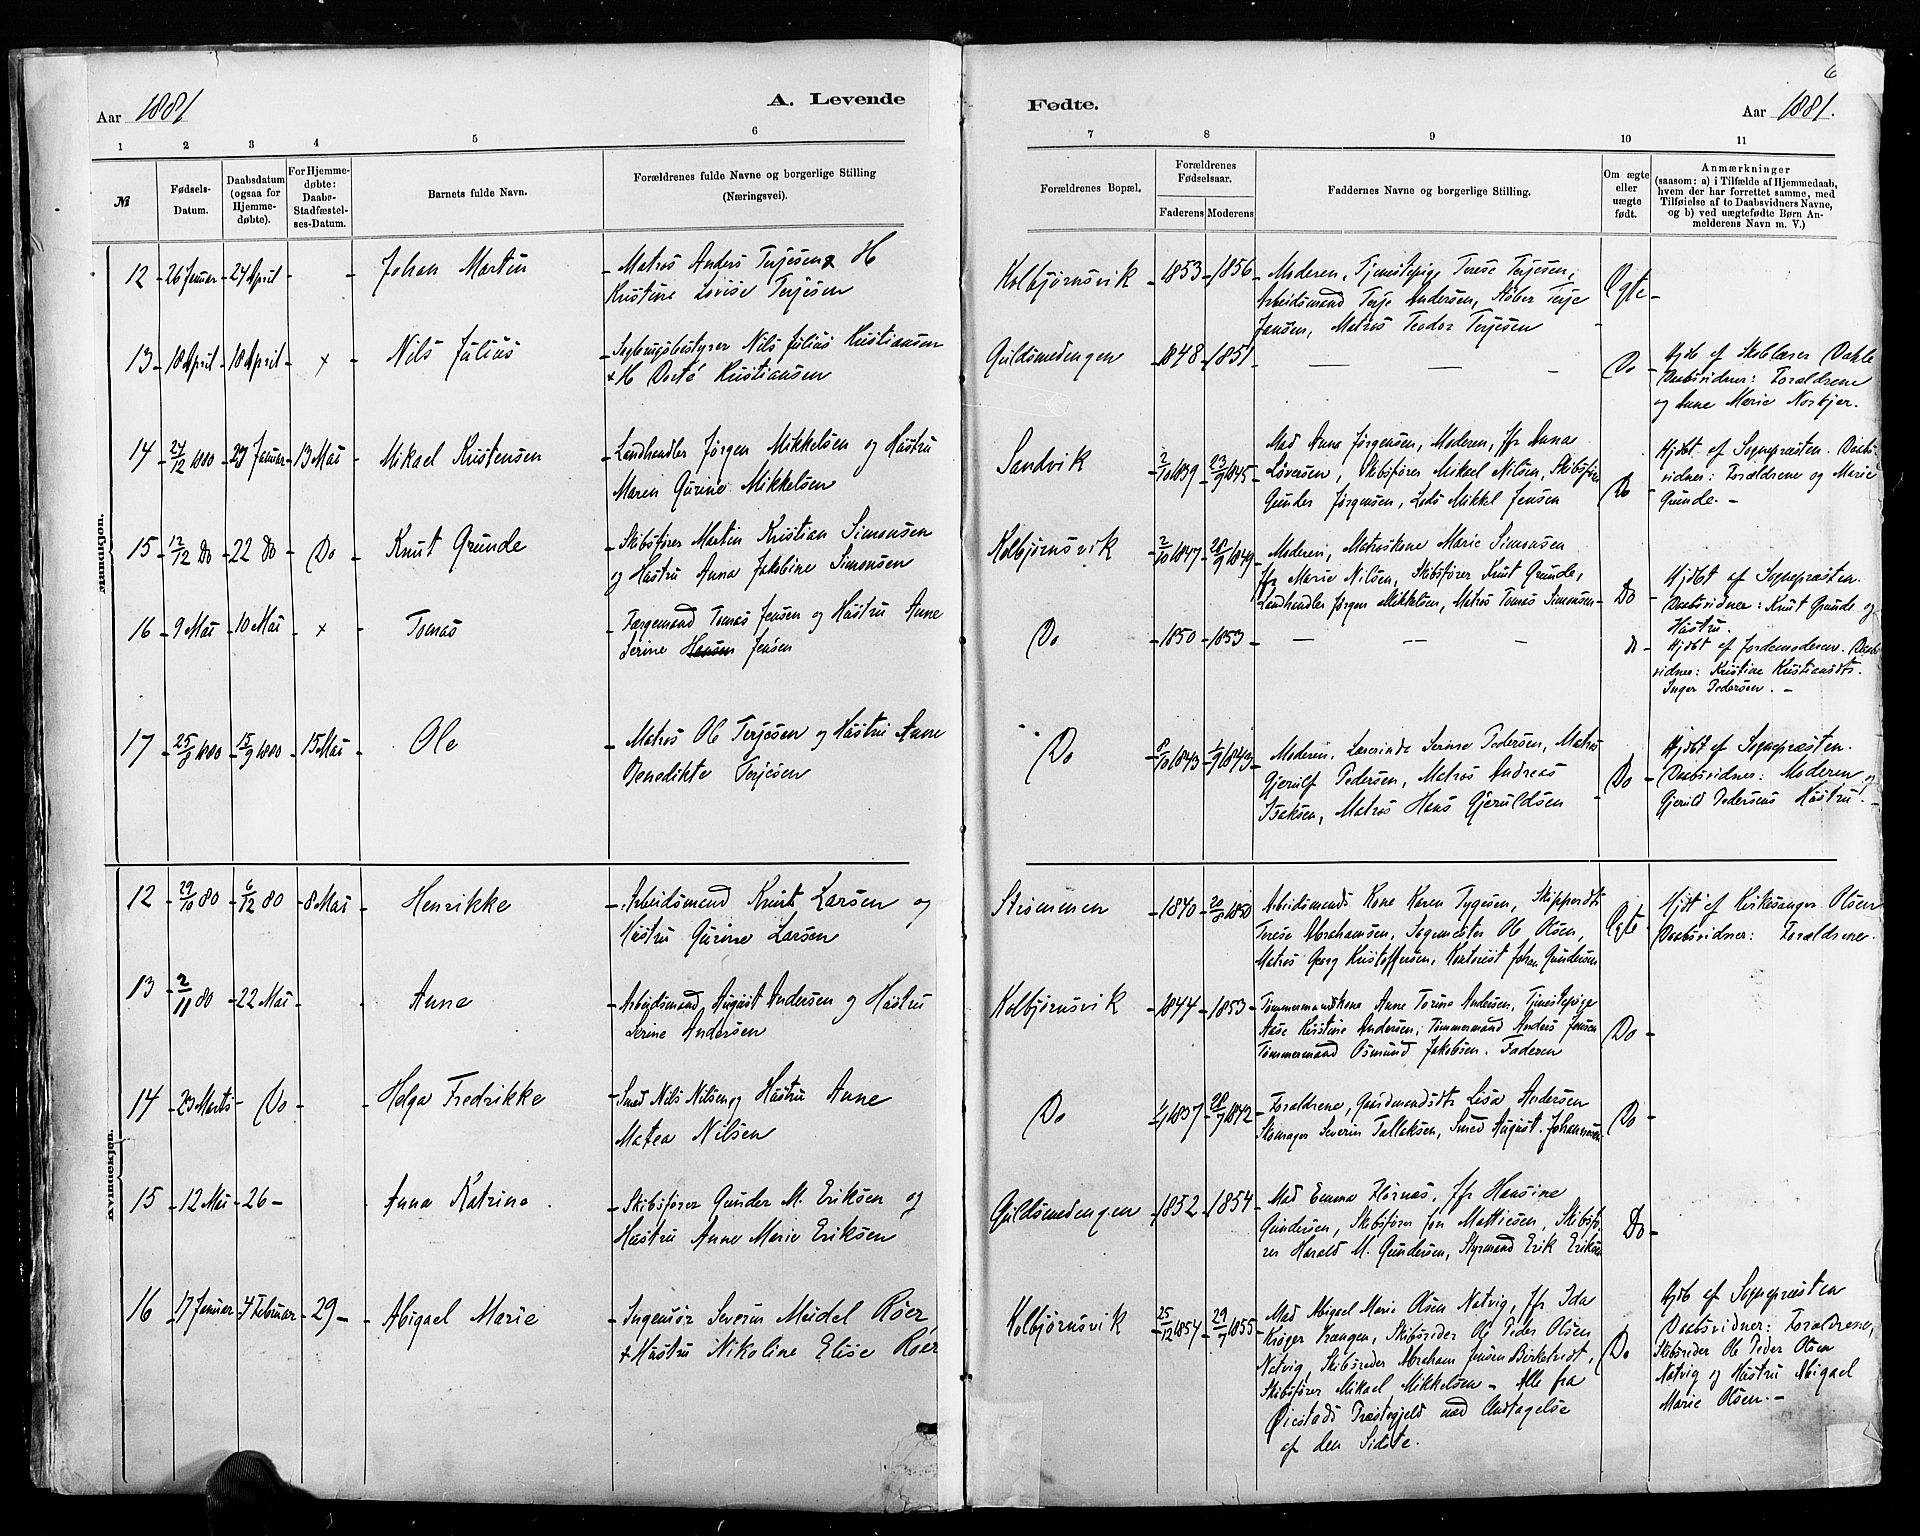 6
Aar 1881
A. Levende
Fødte.
Aar 1881.
1 2 3 4 5 6 7 8 9 10 11
№
Fødsels-Datum.
Daabsdatum (ogsaa for Hjemmedøbte).
For Hjemmedøbte: Daabs-Stadfæstelses-Datum.
Barnets fulde Navn.
Forældrenes fulde Navne og borgerlige Stilling (Næringsvei).
Forældrenes Bopæl.
Forældrenes Fødselsaar.
Faderens Moderens
Faddernes Navne og borgerlige Stilling.
Om ægte eller uægte født.
Anmærkninger
(saasom: a) i Tilfælde af Hjemmedaab, hvem der har forrettet samme, med Tilføielse af to Daabsvidners Navne, og b) ved uægtefødte Børn Anmelderens Navn m. V.)
Mandkjøn.
12 - 26 Januar - 24 April - - Johan Martin - Matros Anders Terjesen & H
Kristine Lovise Terjesen
Kolbjørnsvik - 1853 - 1856 - Moderen, Tjenestepige Terese Terjesen,
Arbeidsmand Terje Andersen, Støber Terje
Jansen, Matros Teodor Terjesen - Ægte -
13 - 18 April - 18 April - x - Nils Julius - Nils Julius Kristiansen
+ H Dorte Kristiansen
Guldsmedengen - 1848 - 1851 - — — - Do - Hjdb af Skolelærer Dahle
Daabsvidner: Forældrene
og Anne Marie Norkjer.
14 - 24/12 1880 - 23 Januar - 13 Mai - Mikael Kristensen - Landhandler Jørgen Mikkelsen og Hustru
Maren Gurine Mikkelsen
Sandvik - 2/10 1839 - 23/9 1845 - Mad Anne Jørgensen, Moderen, Jfr Anna
Løversen, Skibsfører Mikael Nilsen, Skibsfører
Gunder Jørgensen, Lods Mikkel Jensen - Do - Hjdbt af Sognepræsten. Daabs-
vidner: Forældrene og Marie
Grunde. -
15 - 12/12 Do - 22 Do - Do - Knut Grunde - Skibsfører Martin Kristian Simonsen
og Hustru Anna Jakobine Simonsen
Kolbjørnsvik - 2/10 1847 - 28/9 1849 - Moderen, Matroskone Marie Simonsen
Jfr Marie Nilsen, Skibsfører Knut Grunde,
Landhandler Jørgen Mikkelsen, Matros Tomas Simonsen - Do - Hjdbt af Sognepræsten.
Daabsvidner: Knut Grunde og
Hustru.
16 - 9 Mai - 10 Mai - x - Tomas - Færgemand Tomas Jensen og Hustru Anne
Serine Hansen Jensen
Do - 1850 - 1853 - — — - do - Hjdbt af Jordemoderen. Daabs-
vidner: Kristine Kristiansdt.
Inger Pedersen. -
17 - 25/8 1880 - 15/9 1880 - 15 Mai - Ole - Matros Ole Terjesen og Hustru Anne
Benedikte Terjesen
Do - 8/10 1843 - 1/9 1843 - Moderen, Lærerinde Serine Pedersen, Matros
Gjerulf Pedersen, Matros Andreas
Isaksen, Matros Hans Gjeruldsen - Do - Hjdbt af Sognepræsten.
Daabsvidner: Moderen og
Gjeruld Pedersens Hustru. -
Kvindekjøn.
12 - 29/10 80 - 6/12 80 - 8 Mai - Henrikke - Arbeidsmand Knut Larsen og
Hustru Gurine Larsen
Strømmen - 1840 - 20/8 1850 - Arbeidsmands Kone Karen Tygesen, Skipperdt.
Terese Abrahamsen, Sagmester Ole Olsen,
Matros Georg Kristoffersen, Kontorist Johan Gundersen - Ægte - Hjdt af Kirkesanger Olsen
Daabsvidner: Forældrene.
13 - 2/11 80 - 22 Mai - - Anne - Arbeidsmand August Andersen og Hustru
Serine Andersen
Kolbjørnsvik - 1844 - 1853 - Tømmermandskone Anne Torine Andersen, Tjenestepige
Aase Kristine Andersen, Tømmermand Anders Jensen
Tømmermand Osmund Jakobsen. Faderen - Do -
14 - 23 Marts - Do - - Helga Fredrikke - Smed Nils Nilsen og Hustru Anne
Matea Nilsen
Do - 1837 - 28/7 1842 - Forældrene, Gaardmandsdt. Lisa Andersen
Skomager Severin Tallaksen, Smed August Johannesen - Do -
15 - 12 Mai - 26 - Anna Katrine. - Skibsfører Gunder M. Eriksen og
Hustru Anne Marie Eriksen
Guldsmedengen - 1852 - 1854 - Mad Emma Flørnæs, Jfr Hansine
Gundersen, Skibsfører Jon Mattiesen, Skibsfø-
rer Harald M. Gundersen, Styrmand Erik Eriksen - Do -
16 - 17 Januar - 4 Februar - 29 - - Abigael Marie - Ingeniør Severin Meidel Røer
+ Hustru Nikoline Elise Røer
Kolbjørnsvik - 25/12 1854 - 29/7 1855 - Mad Abigael Marie Olsen Natvig, Jfr Ida
Krøger Krangen, Skibsreder Ole Peder Olsen
Natvig, Skibsreder Abraham Jensen Birketvedt,
Skibsfører Mikael Mikkelsen - Alle fra
Øiestads Præstegjeld med Undtagelse
af den Sidste. - Do - Hjdb af Sognepræsten
Daabsvidner: Forældrene,
Skibsreder Ole Peder Olsen
Natvig og Hustru Abigael
Marie Olsen. -